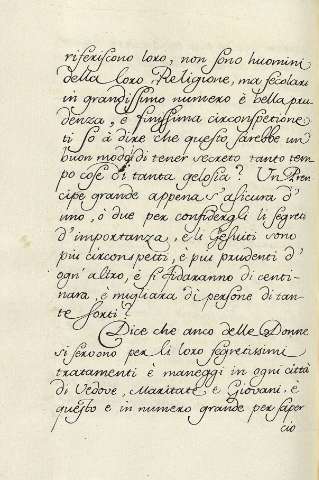 riferiscono loro, non sono huomini
della loro Religione, ma secolari
in grandissimo numero è bella pru
denza, e finissima circonspetione
ti so à dire che questo sarebbe un
buon modo di tener secreto tanto tem
po cose di tanta gelosia? Un Pren
cipe grande appena s'asicura d'
uno, ò due per confidergli li segreti
d'importanza, e li Gesuiti sono
piu circonspetti, e piu prudenti d'
ogn'altro, è si fidaranno di centi-
nara, è migliara di persone di tan-
te sorti?
Dice che anco delle Donne
si servono per li loro segretissimi
trattamenti è maneggi in ogni città
di Vedove, Maritate, e Giovani, è
questo e in numero grande per saper
cio